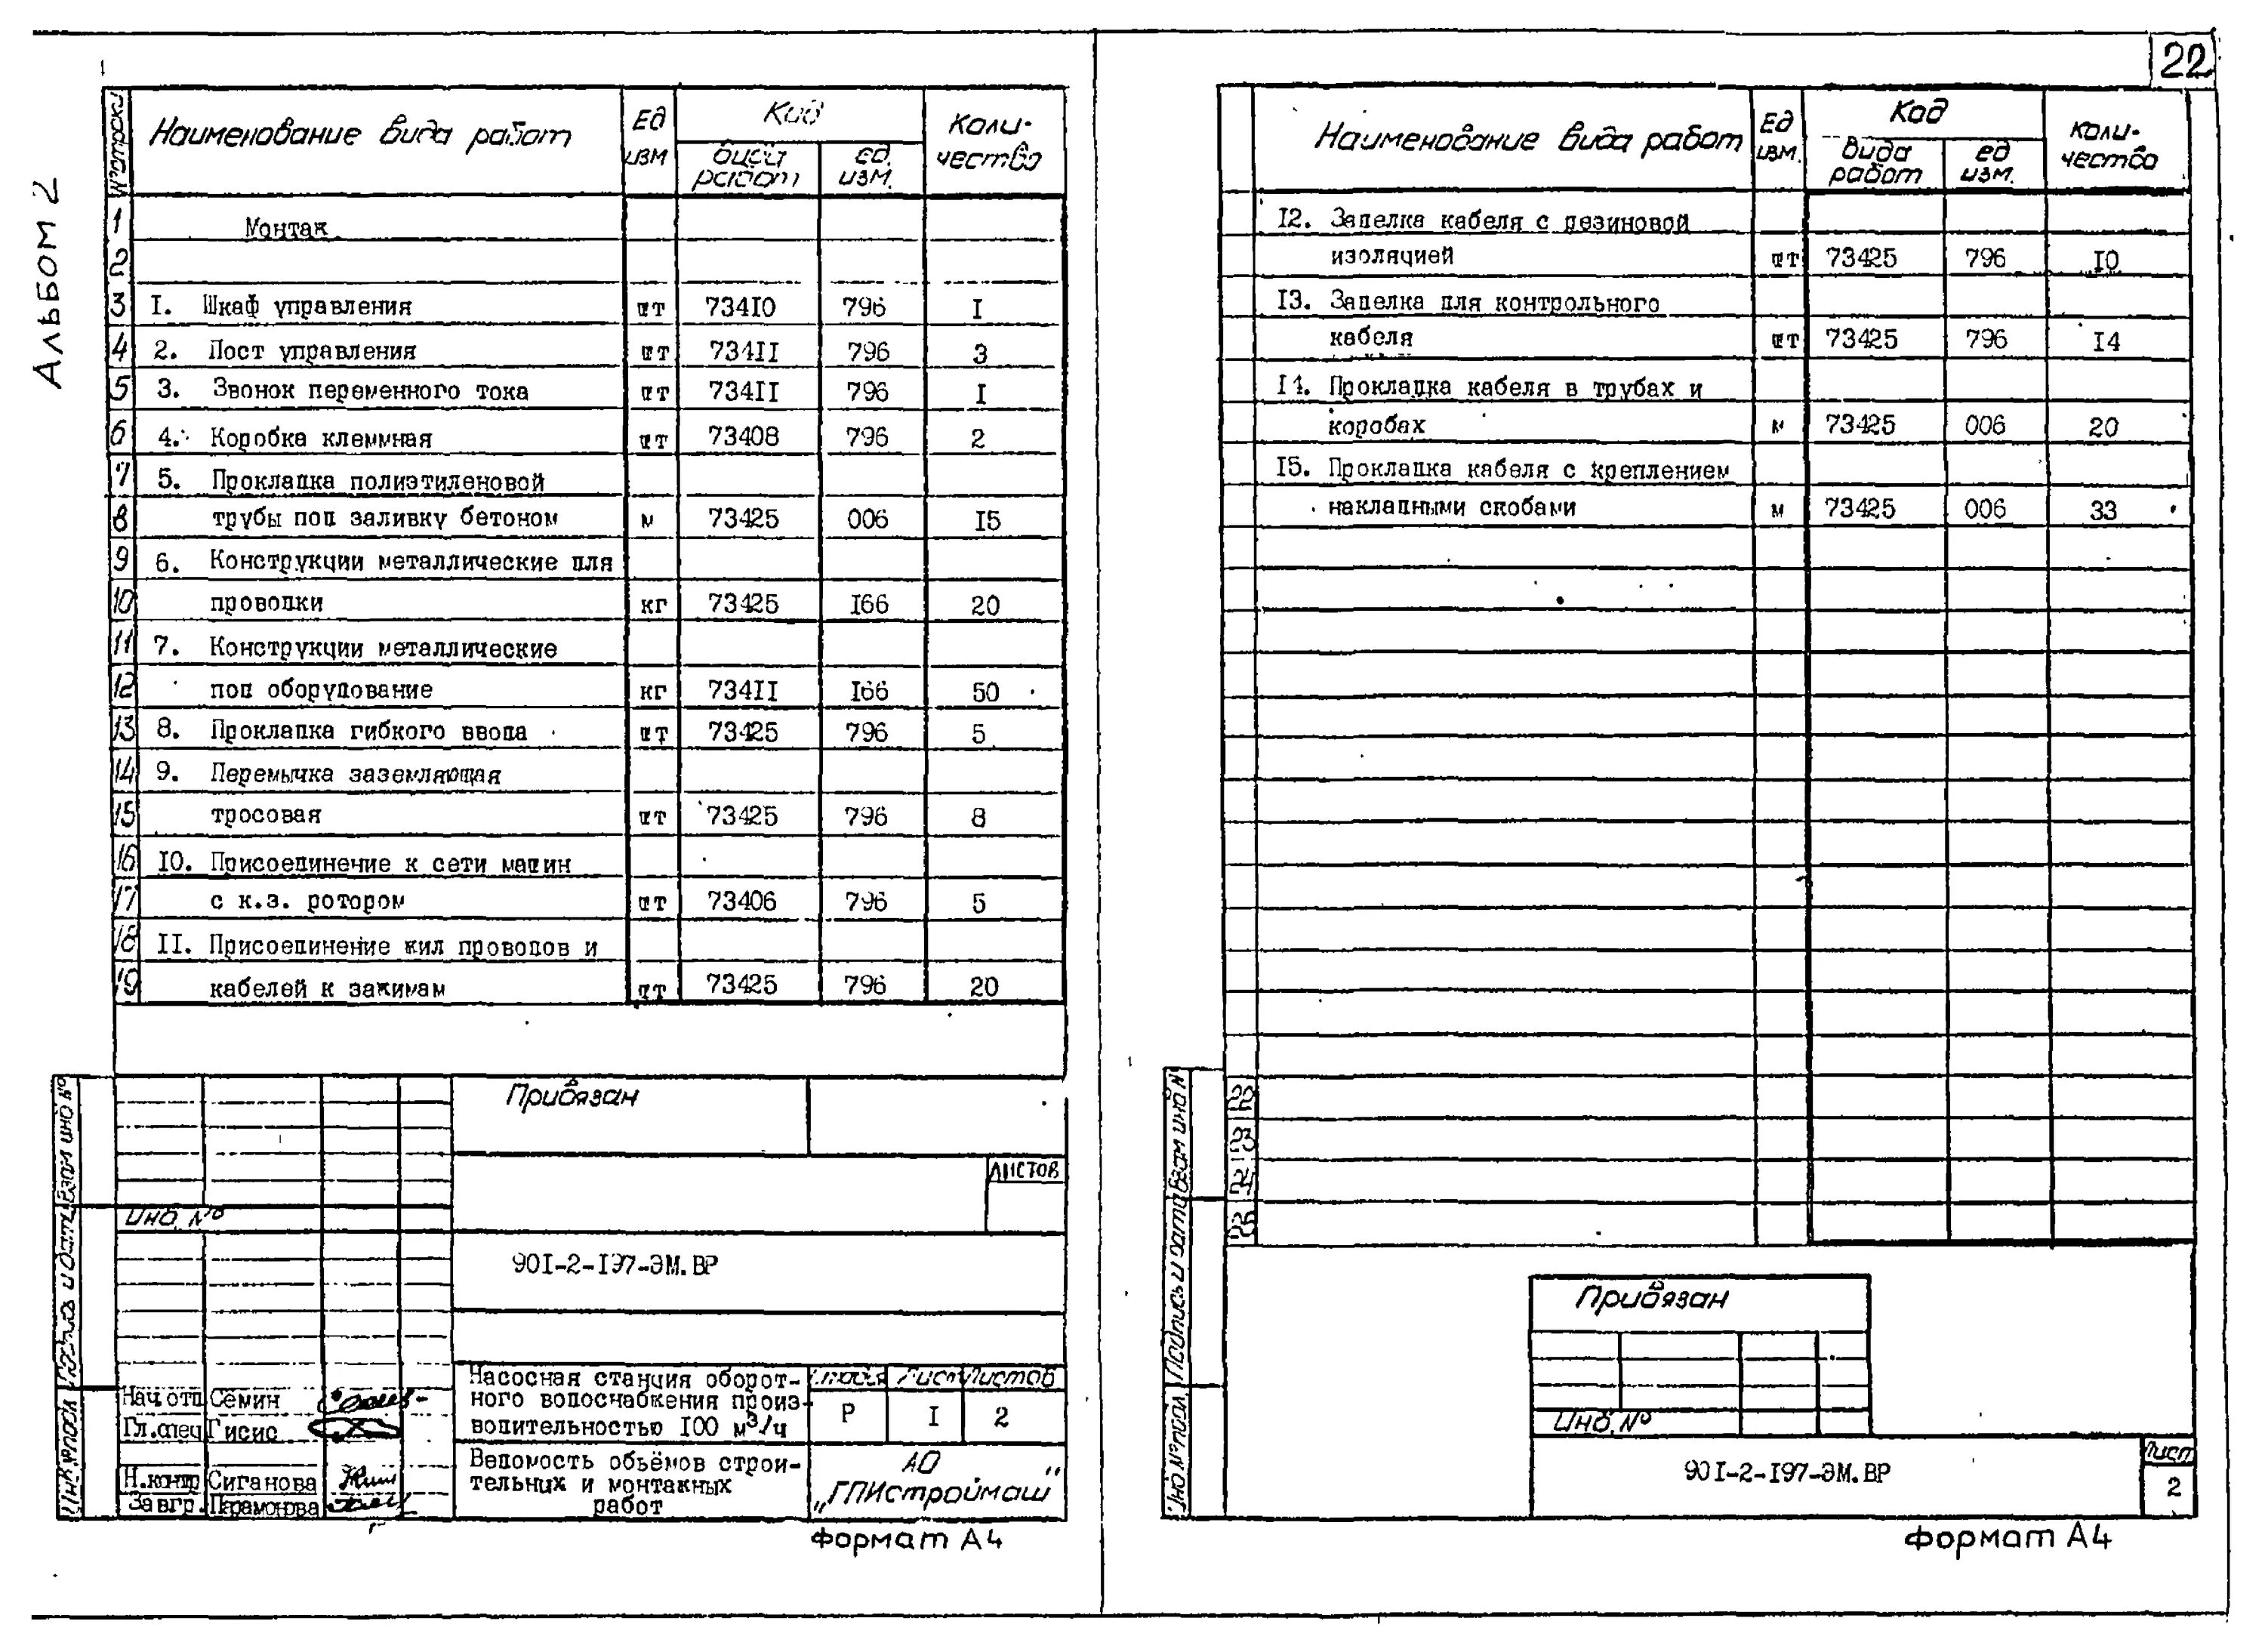 22
АЛЬБОМ 2
№ строки Наименование вида работ Ед изм Код вида работ ед. изм. Коли-чество
1 Монтаж
2
3 1. Шкаф управления шт 73410 796 1
4 2. Пост управления шт 73411 796 3
5 3. Звонок переменного тока шт 73411 796 1
6 4. Коробка клеммная шт 73408 796 2
7 5. Прокладка полиэтиленовой
8 трубы под заливку бетоном м 73425 006 15
9 6. Конструкции металлические для
10 проводки кг 73425 166 20
11 7. Конструкции металлические
12 под оборудование кг 73411 166 50
13 8. Прокладка гибкого ввода шт 73425 796 5
14 9. Перемычка заземляющая
15 тросовая шт 73425 796 8
16 10. Присоединение к сети машин
17 с к.з. ротором шт 73406 796 5
18 11. Присоединение жил проводов и
19 кабелей к зажимам шт 73425 796 20
Привязан
ЛИСТОВ
Инв. №
901-2-197-ЭМ.ВР
Нач.отд Семин
Гл.спец Гисис
Н.контр Сиганова
Зав гр. Парамонова
Насосная станция оборот-
ного водоснабжения произ-
водительностью 100 м³/ч
Стадия Лист Листов
Р 1 2
Ведомость объёмов строи-
тельных и монтажных
работ
АО
„ГПИстроймаш"
Формат А4
Наименование вида работ Ед изм. Код вида работ ед изм. Коли-чество
12. Заделка кабеля с резиновой
изоляцией шт 73425 796 10
13. Заделка для контрольного
кабеля шт 73425 796 14
14. Прокладка кабеля в трубах и
коробах м 73425 006 20
15. Прокладка кабеля с креплением
накладными скобами м 73425 006 33
23
24
Инв № подл. Подпись и дата Взам инв №
Привязан
Инв. №
901-2-197-ЭМ.ВР
Лист
2
Формат А4